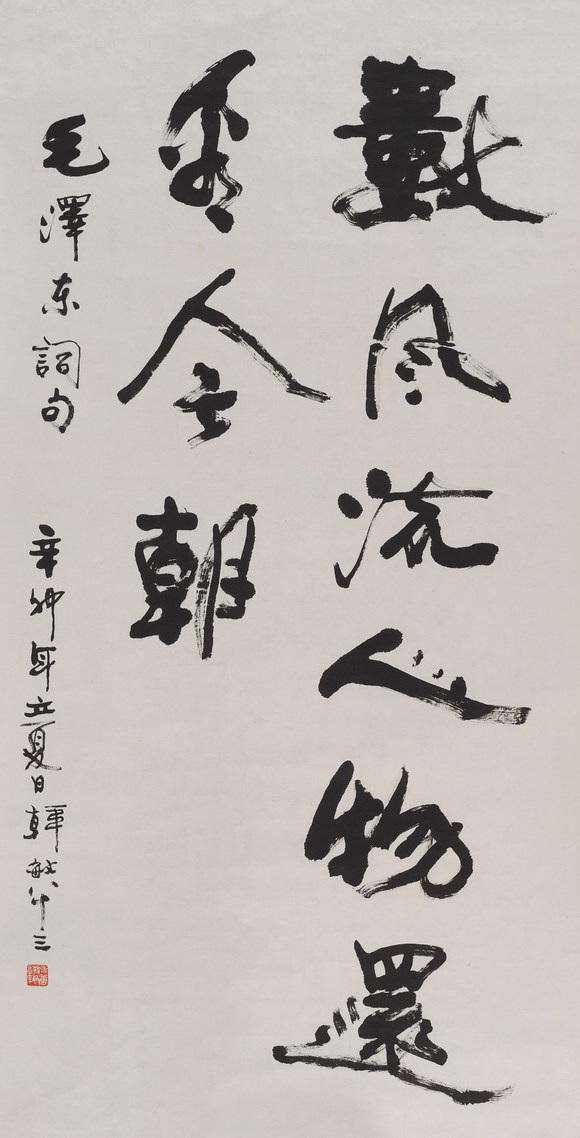 數风流人物還
看今朝
毛澤东詞句
辛卯年立夏日韓敏八十三